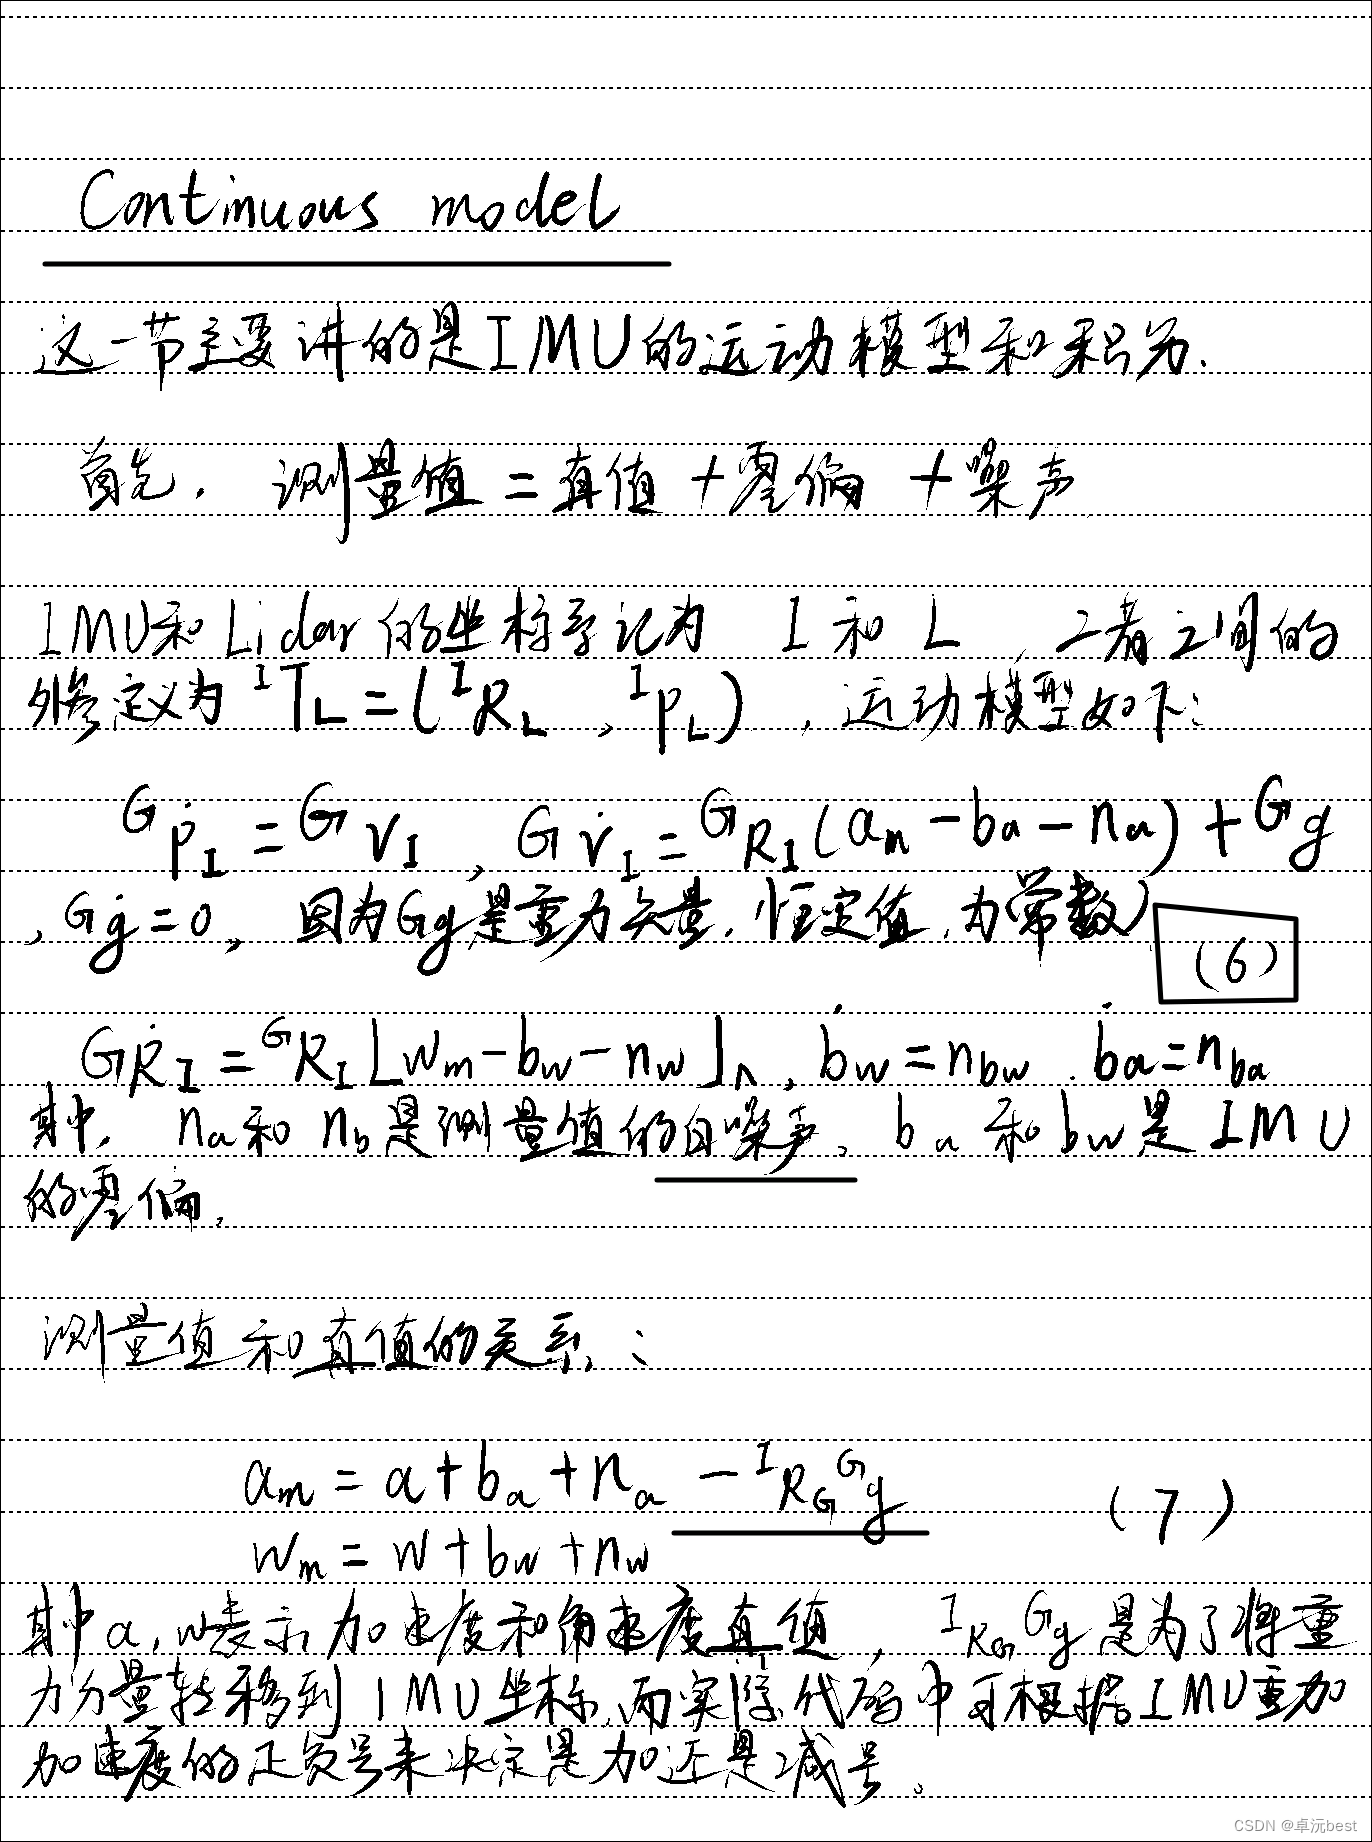 Continuous model
这一节主要讲的是IMU的运动模型和积分.
首先, 测量值 = 真值 + 零偏 + 噪声
IMU和Lidar的坐标系记为 I 和 L , 二者之间的
外参定义为 ᴵT_L = (ᴵR_L , ᴵp_L) , 运动模型如下:
ᴳṗ_I = ᴳv_I , ᴳv̇_I = ᴳR_I(a_m - b_a - n_a) + ᴳg
, ᴳġ = 0, 因为Gg是重力矢量, 恒定值, 为常数)
(6)
ᴳṘ_I = ᴳR_I⌊w_m - b_w - n_w⌋_∧, ḃ_w = n_bw . ḃ_a = n_ba
其中, n_a和 n_b是测量值的白噪声, b_a 和 b_w是IMU
的零偏,
测量值和真值的关系:
a_m = a + b_a + n_a - ᴵR_G ᴳg (7)
w_m = w + b_w + n_w
其中a, w表示加速度和角速度真值, ᴵR_G ᴳg是为了将重
力分量转移到IMU坐标,而实际代码中可根据IMU重加
加速度的正负号来决定是加还是减号。
CSDN @卓沅best